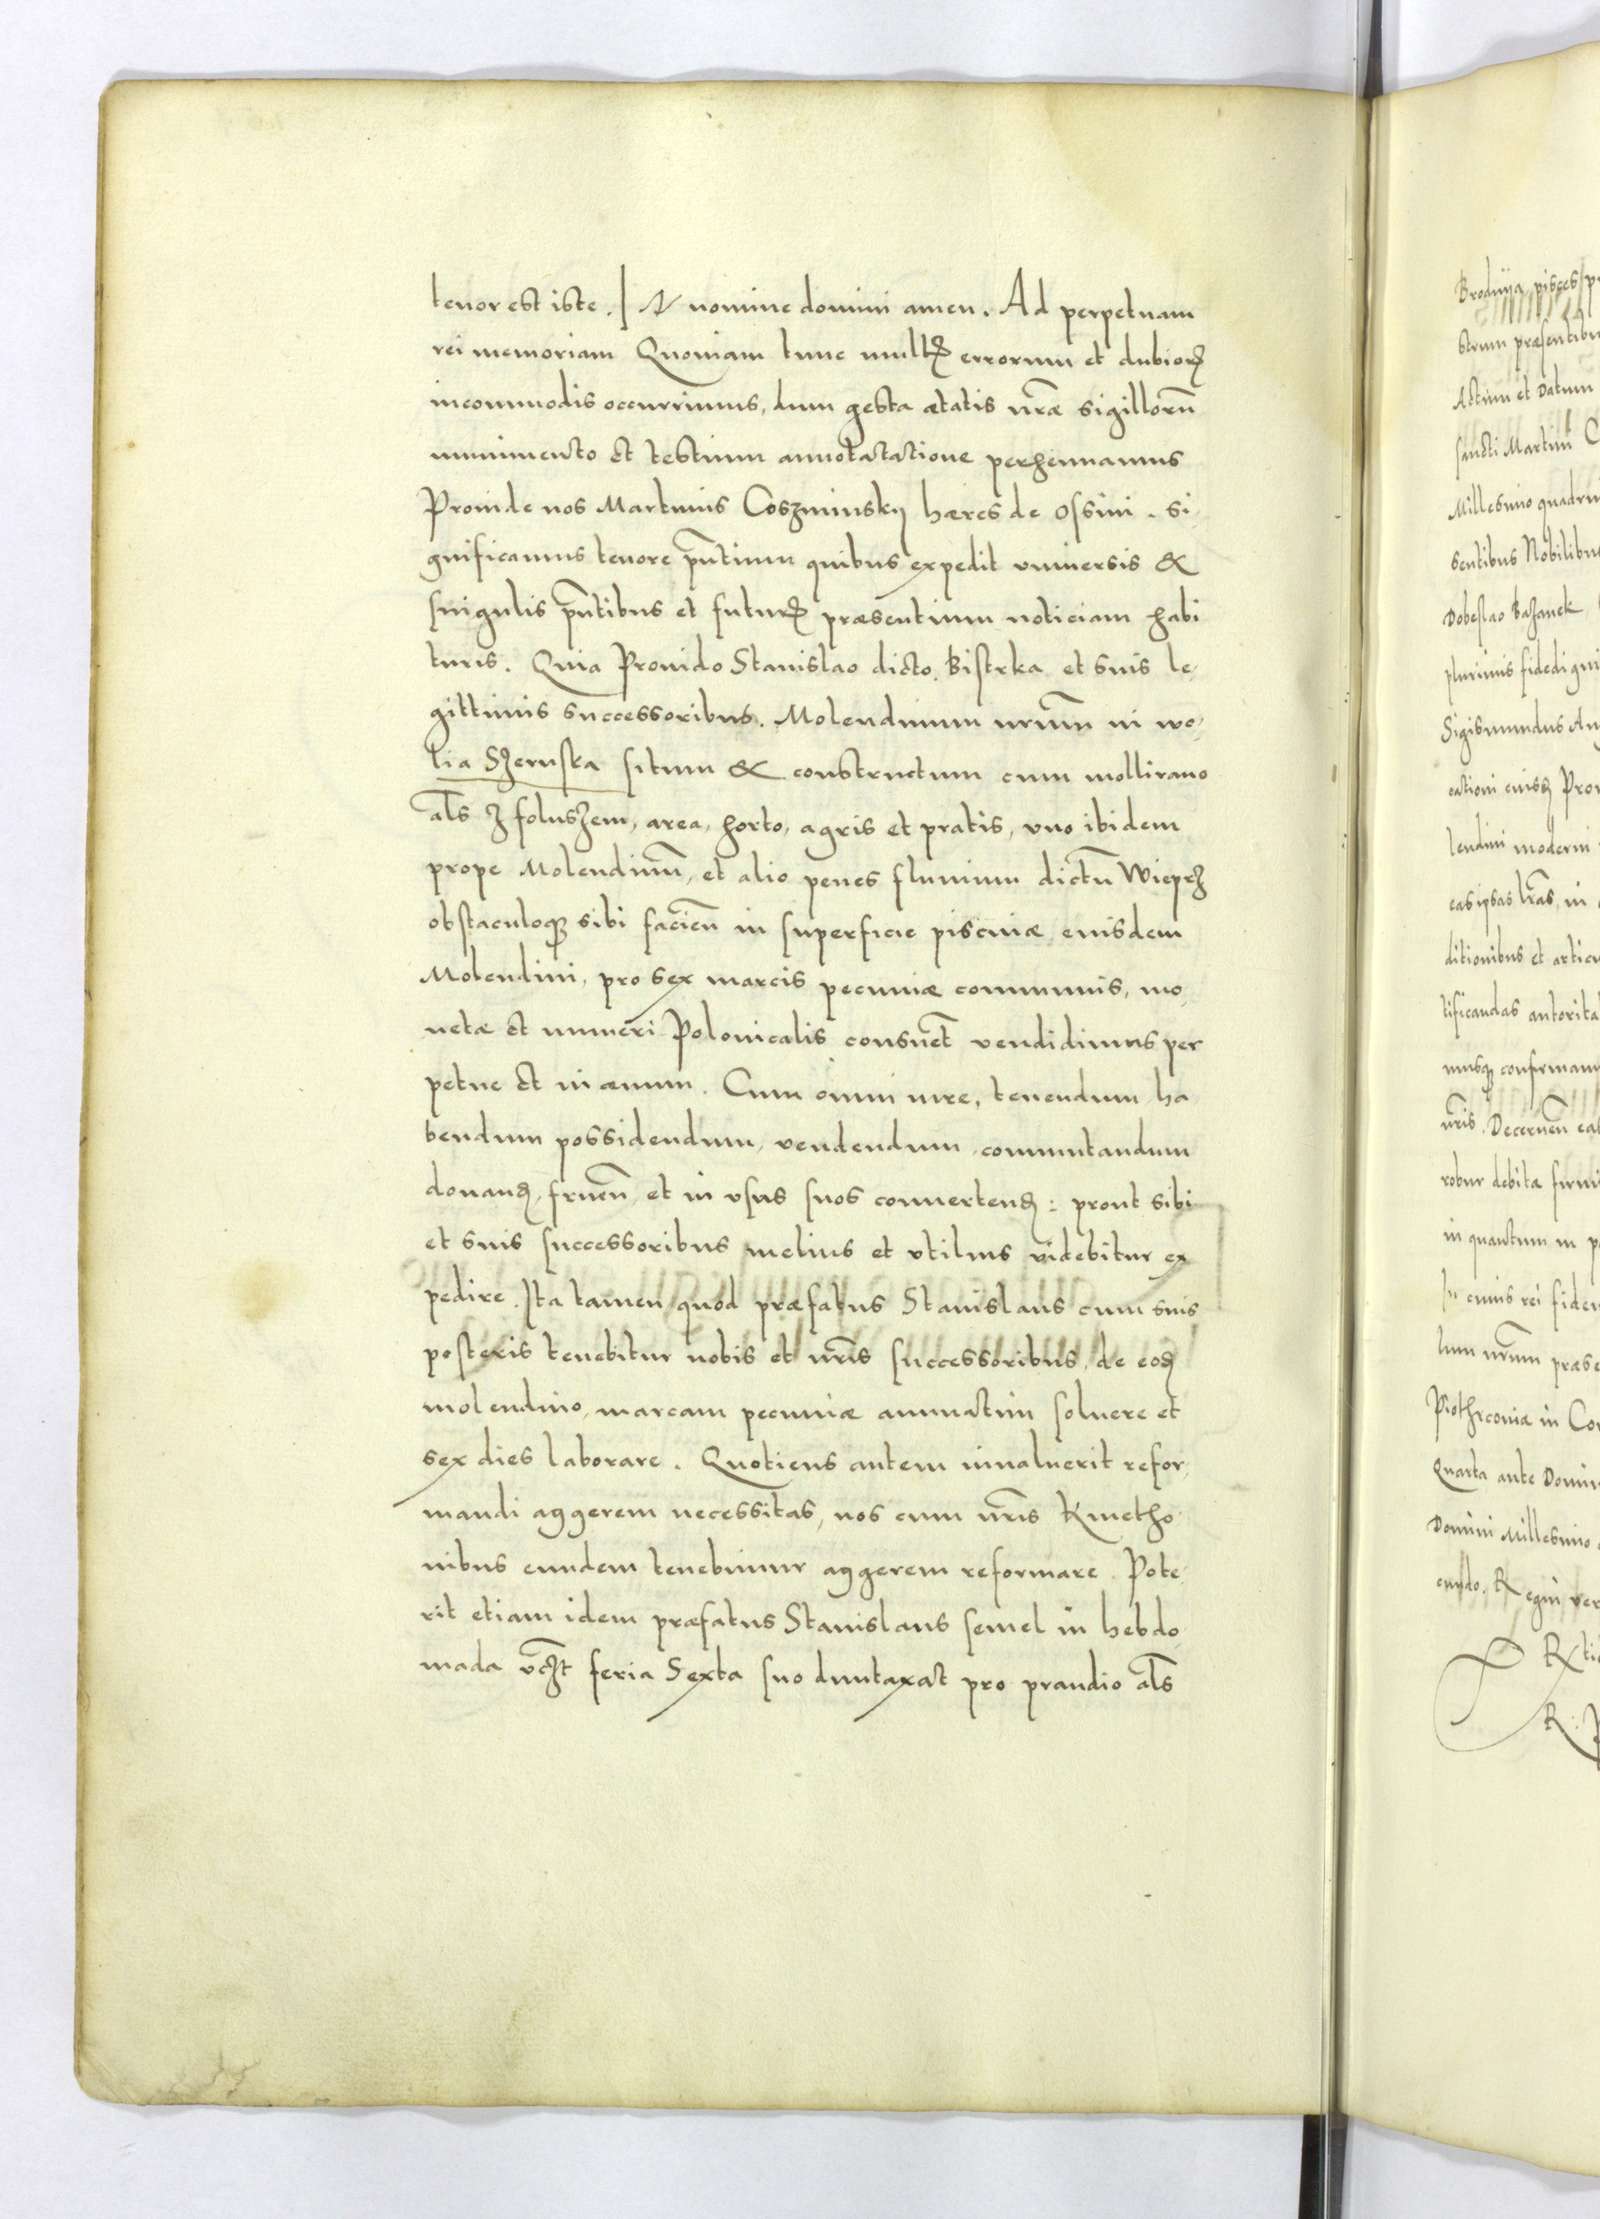 tenor est iste. IN nomine domini amen. Ad perpetuam
rei memoriam Quoniam tunc multꝝ errorum et dubioꝝ
incommodis occurrimus, dum gesta ætatis nr̃æ sigillorũ
munimento et testium annotatatione perhennamus
Proinde nos Martinus Coszminskij hæres de Ossini. si
gnificamus tenore pñtium quibus expedit vniuersis &
singulis pñtibus et futurꝫ præsentium noticiam habi
turis. Quia Prouido Stanislao dicto Bistrka et suis le,
gittimis successoribus. Molendinum nrũm in wo,
lia Szeruska situm & constructum cum mollirano
al̃s z foluszem, area, horto, agris et pratis, vno ibidem
prope Molendinũ, et alio penes fluuium dictũ Wieprz
obstaculoqꝫ sibi facieñ in superficie piscinæ eiusdem
Molendini, pro sex marcis pecuniæ communis, mo,
netæ et numeri Polonicalis consuet̃ vendidimus per
petue et in æuum. Cum omni iure, tenendum, ha
bendum possidendum, vendendum, commutandum
donanꝫ, frueñ, et in vsus suos conuertenꝫ: prout sibi
et suis successoribus melius et vtilius videbitur ex
pedire. Ita tamen quod præfatus Stanislaus cum suis
posteris tenebitur nobis et nr̃is successoribus, de eoꝫ
molendino, marcam pecuniæ annuatim soluere et
sex dies laborare. Quotiens autem inualuerit refor,
mandi aggerem necessitas, nos cum nr̃is Kmetho
nibus eundem tenebimur aggerem reformare. Pote
rit etiam idem præfatus Stanislaus semel in hebdo,
mada vꝫt feria Sexta suo duntaxat pro prandio al̃s
Brodnija pisces
strum præsentibu
Actum et Datum
sancti Martini
Millesimo quadri
sentibus Nobilibus
Dobeslao Bazanek
plurimis fidedigni
Sigismundus Au
cationi eiusꝫ Pro
lendini moderni
eas ipsas lr̃as, in
ditionibus et articu
tificandas autorita
musqꝫ confirmam
nr̃is. Decerneñ ea
robur debitæ firmi
in quantum in p
In cuius rei fidem
lum nrũm præse
Piothrconiæ in Co
Quarta ante Domin
Domini Millesimo
cundo. Regni ver